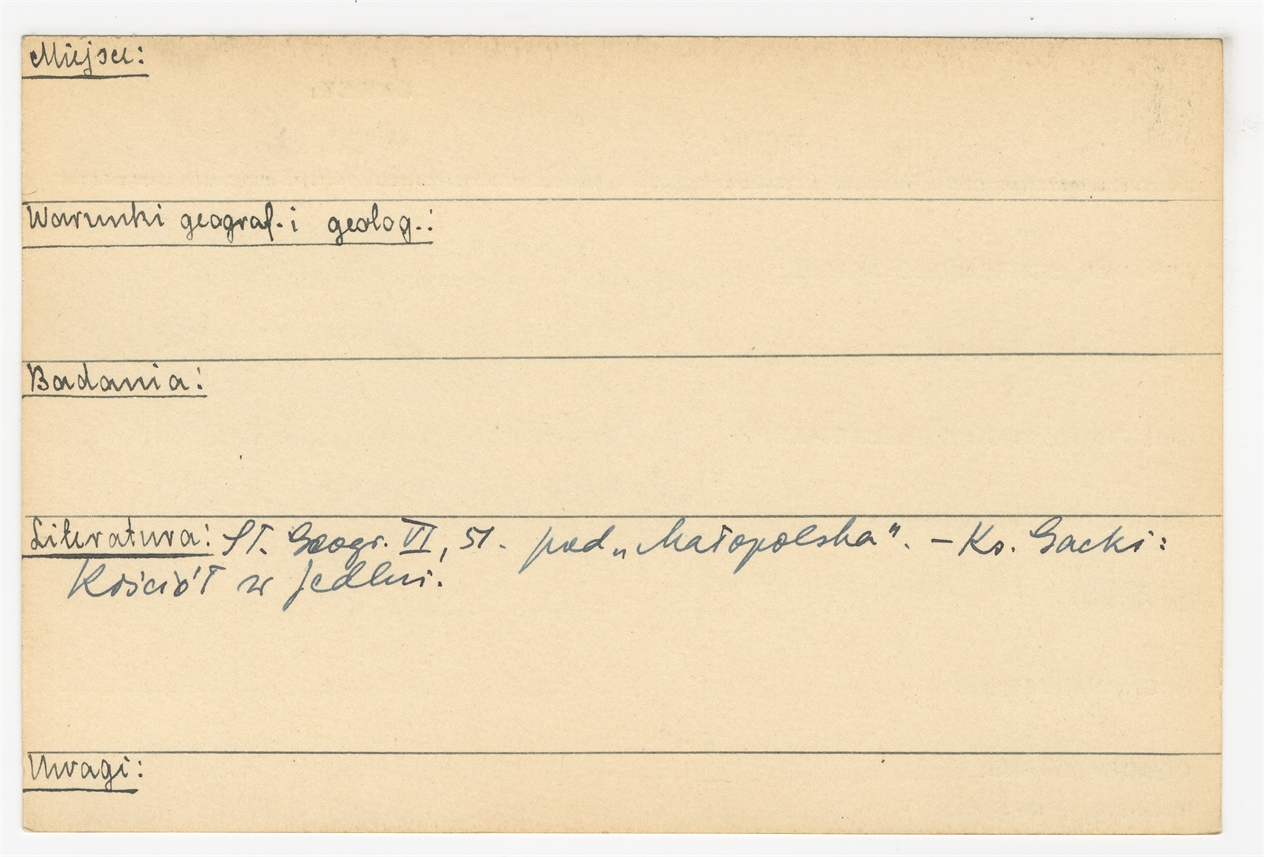 Miejsce:
Warunki geograf. i geolog.:
Badania:
Literatura: Sł. Geogr. VI, 51. pod „Małopolska". – Ks. Gacki:
Kościół w Jedlni.
Uwagi: